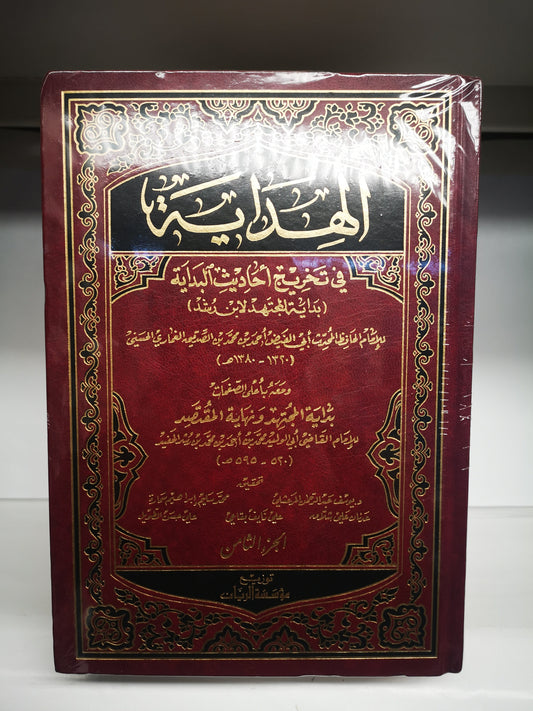 الهداية
في تخريج أحاديث البداية
(بداية المجتهد لابن رشد)
للإمام الحافظ المحدث أبي الفيض أحمد بن محمد بن الصديق الغماري الحسني
(١٣٢٠ - ١٣٨٠ هـ)
ومعه بأعلى الصفحات
بداية المجتهد ونهاية المقتصد
للإمام القاضي أبي الوليد محمد بن أحمد بن محمد بن رشد الحفيد
(٥٢٠ - ٥٩٥ هـ)
تحقيق
د. يوسف عبد الرحمن المرعشلي محمد سليم إبراهيم سمارة
عدنان علي شلاق علي نايف بقاعي علي حسن الطويل
الجزء الثامن
توزيع
مؤسسة الريان